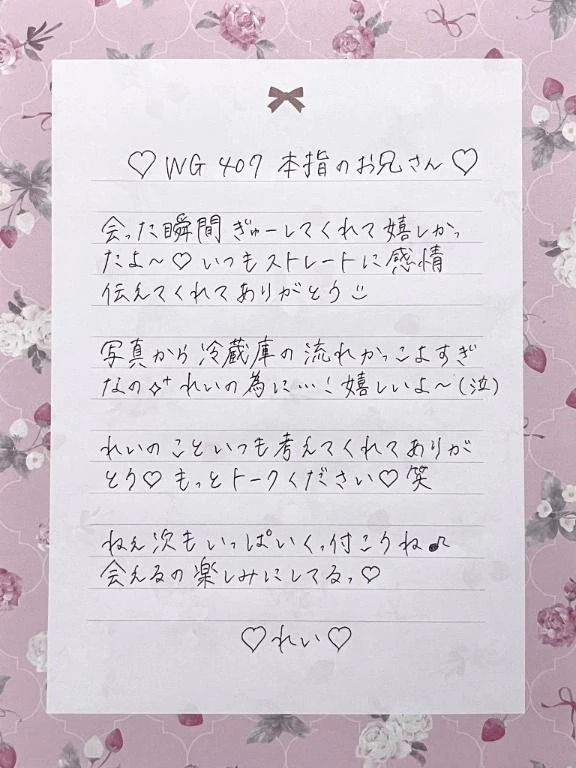 ♡ WG 407 本指のお兄さん ♡
会った瞬間ぎゅーしてくれて嬉しかっ
たよ〜♡いつもストレートに感情
伝えてくれてありがとう☺
写真から冷蔵庫の流れかっこよすぎ
なの✧⁺れいの為に…!嬉しいよ〜(泣)
れいのこといつも考えてくれてありが
とう♡もっとトークください♡笑
ねぇ次もいっぱいくっ付こうね♪
会えるの楽しみにしてるっ♡
♡れい♡